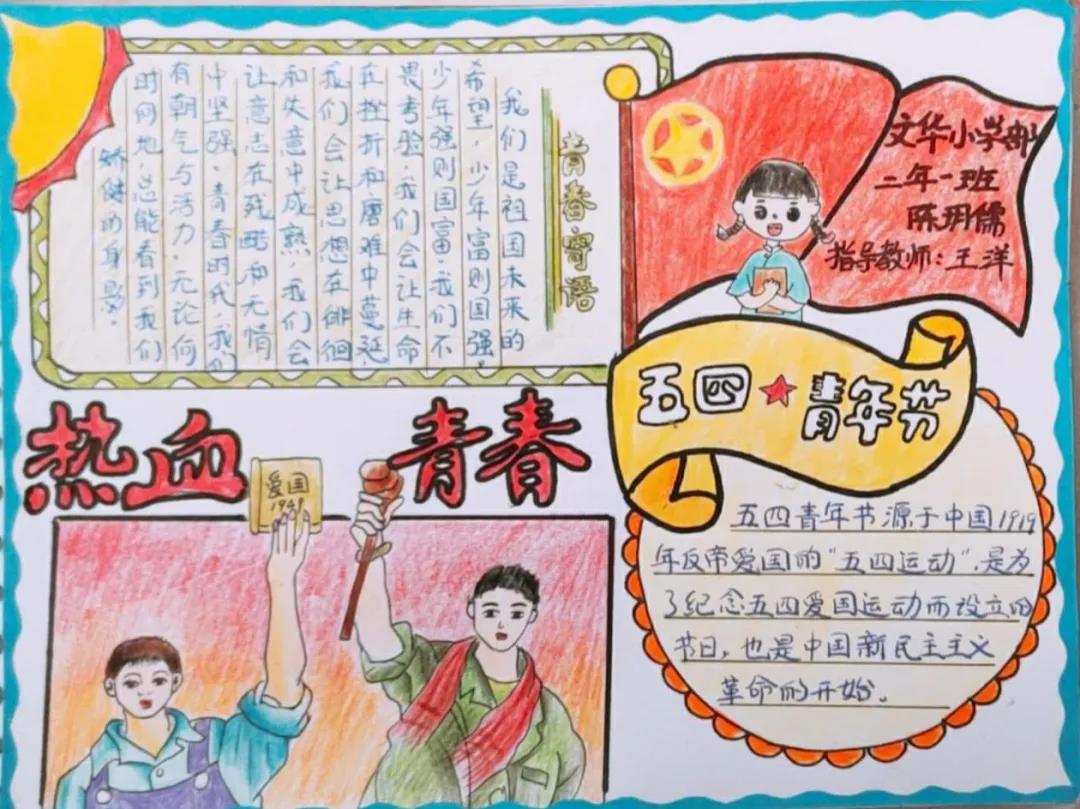 青春寄语
我们是祖国未来的
希望,少年富则国强。
少年强则国富,我们不
畏考验,我们会让生命
在挫折和磨难中蔓延,
我们会让思想在徘徊
和失意中成熟,我们会
让意志在残酷和无情
中坚强。青春时代,我们
有朝气与活力,无论何
时何地,总能看到我们
矫健的身影。
文华小学部
二年一班
陈玥儒
指导教师:王洋
五四★青年节
热血 青春
爱国
1949
五四青年节源于中国1919
年反帝爱国的“五四运动”,是为
了纪念五四爱国运动而设立的
节日,也是中国新民主主义
革命的开始。